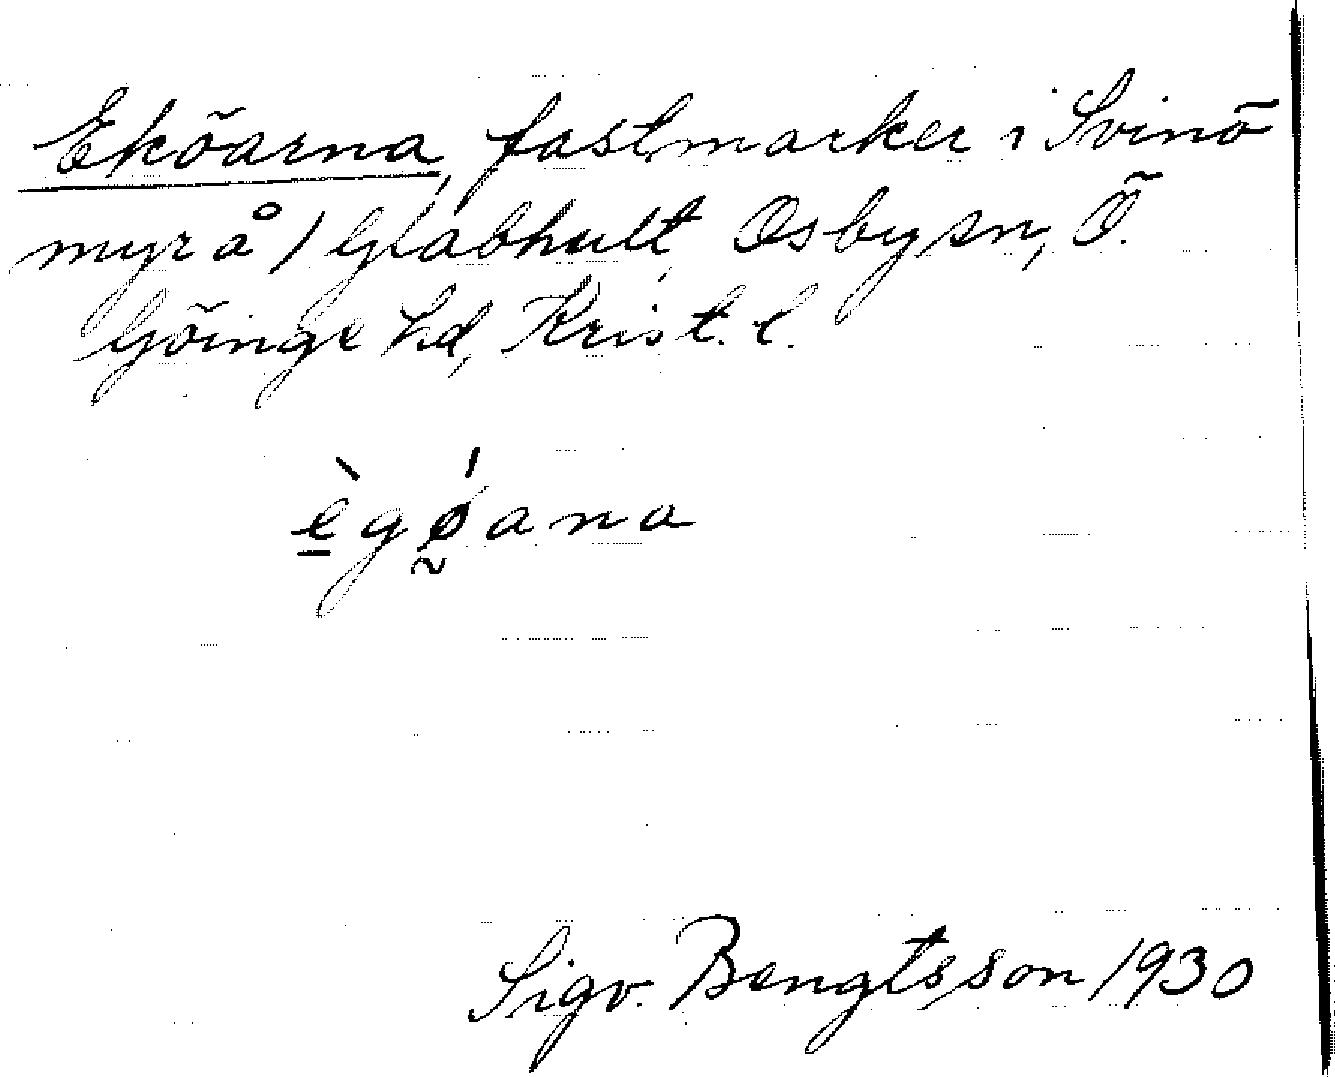 Eköarna, fastmarker i Svinö
myr å / Glabhult, Osby sn, Ö.
Göinge hd, Krist. l.
ègǿ̰ana
Sigv. Bengtsson 1930